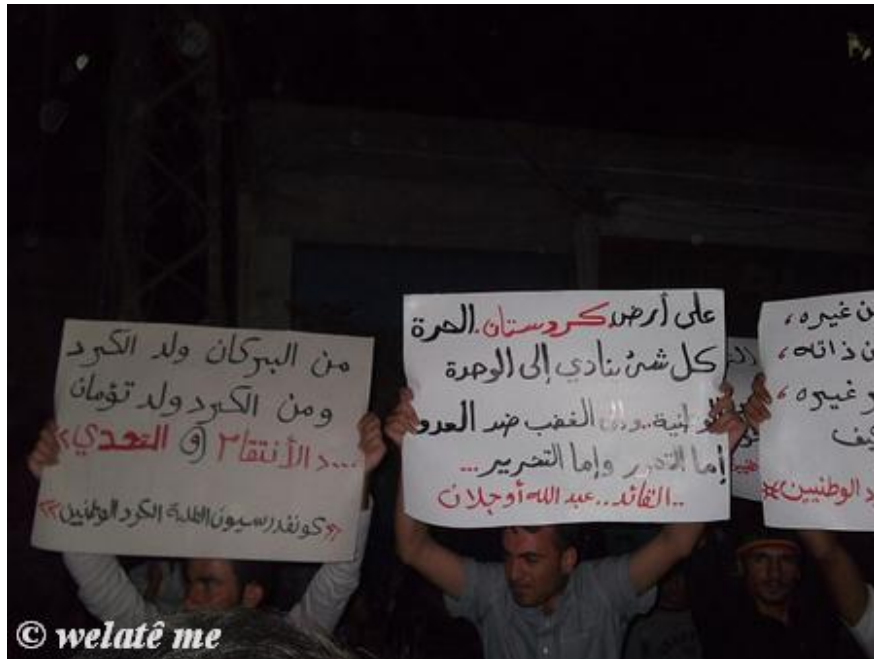 من البركان ولد الكرد
ومن الكرد ولد تؤمان
...د الأنتقام و التحدي>>
<<كونفدرسيون الطلبة الكرد الوطنيين>>
على أرض كردستان.الحرة
كل شئ ينادي إلى الوحدة
الغضب ضد العدو
إما وإما التحرير...
..القائد..عبد الله أوجلان
ن غيره،
ن ذاته،
ر غيره،
كيف
د الوطنيين>>
© welatê me